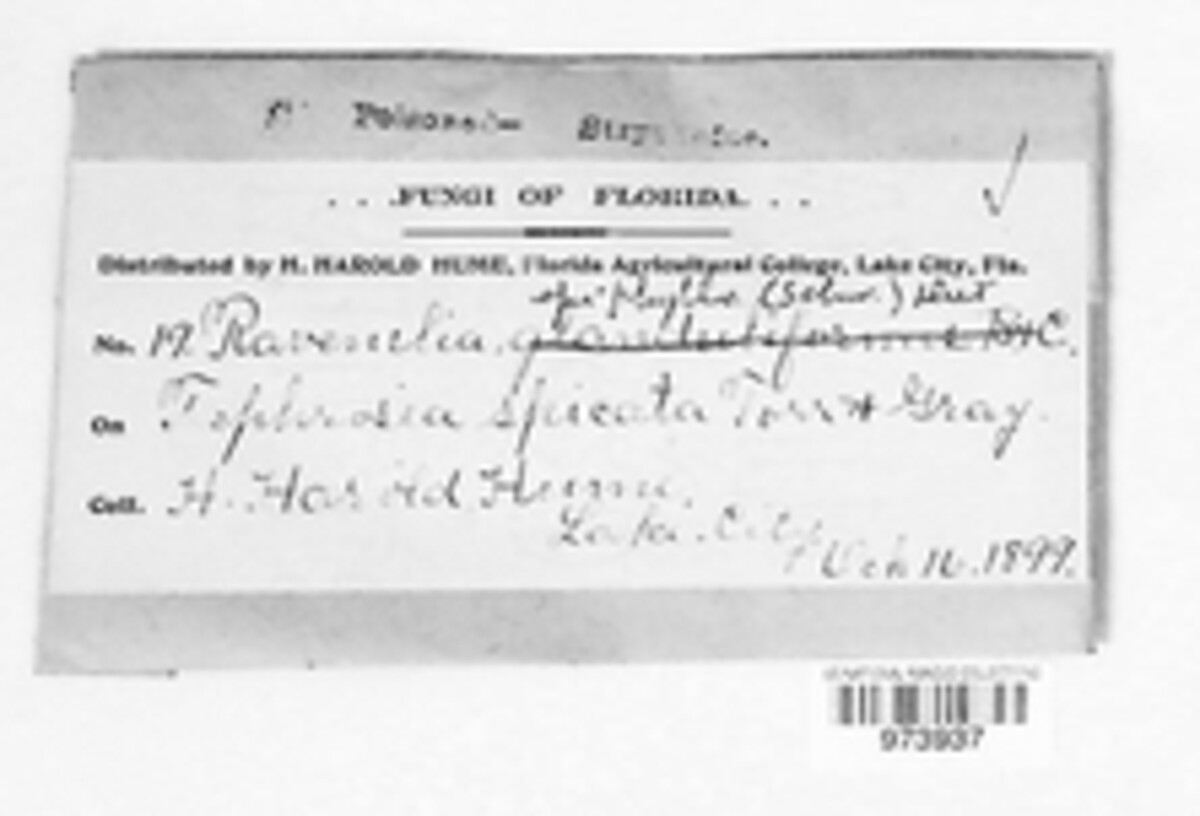 Poisoned
. . .FUNGI OF FLORIDA. . .
Distributed by H. HAROLD HUME, Florida Agricultural College, Lake City, Fla.
(Schw.) Diet
No. 17. Ravenelia glanduliformis B & C.
On Tephrosia spicata Torr & Gray.
Coll. H. Harold Hume.
Lake City
Oct 16. 1899.
973937